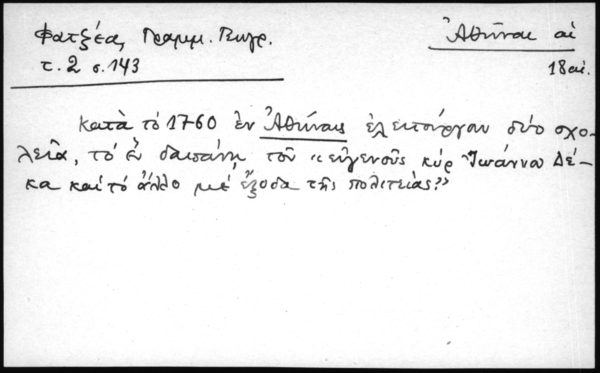 Φατζέα, Γραμμ. Γεωγρ.
τ. 2 σ. 143
Ἀθῆναι αἱ
18 αἰ.
Κατὰ τὸ 1760 ἐν Ἀθήναις ἐλειτούργουν δύο σχο-
λεῖα, τὸ ἓν δαπάνῃ τοῦ «εὐγενοῦς κὺρ Ἰωάννου Δέ-
κα καὶ τὸ ἄλλο μὲ ἔξοδα τῆς πολιτείας»